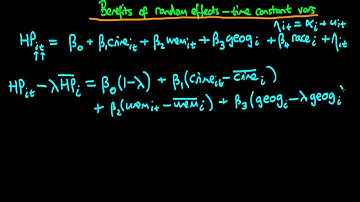 Benefits of random effects - time constant vars
η_it = α_i + u_it
HP_it = β₀ + β₁crime_it + β₂unem_it + β₃geog_i + β₄race_i + η_it
↑↑
HP_it - λH̅P̅_i = β₀(1-λ) + β₁(crime_it - c̅r̅i̅m̅e̅_i)
+ β₂(unem_it - u̅n̅e̅m̅_i) + β₃(geog_i - λgeog_i